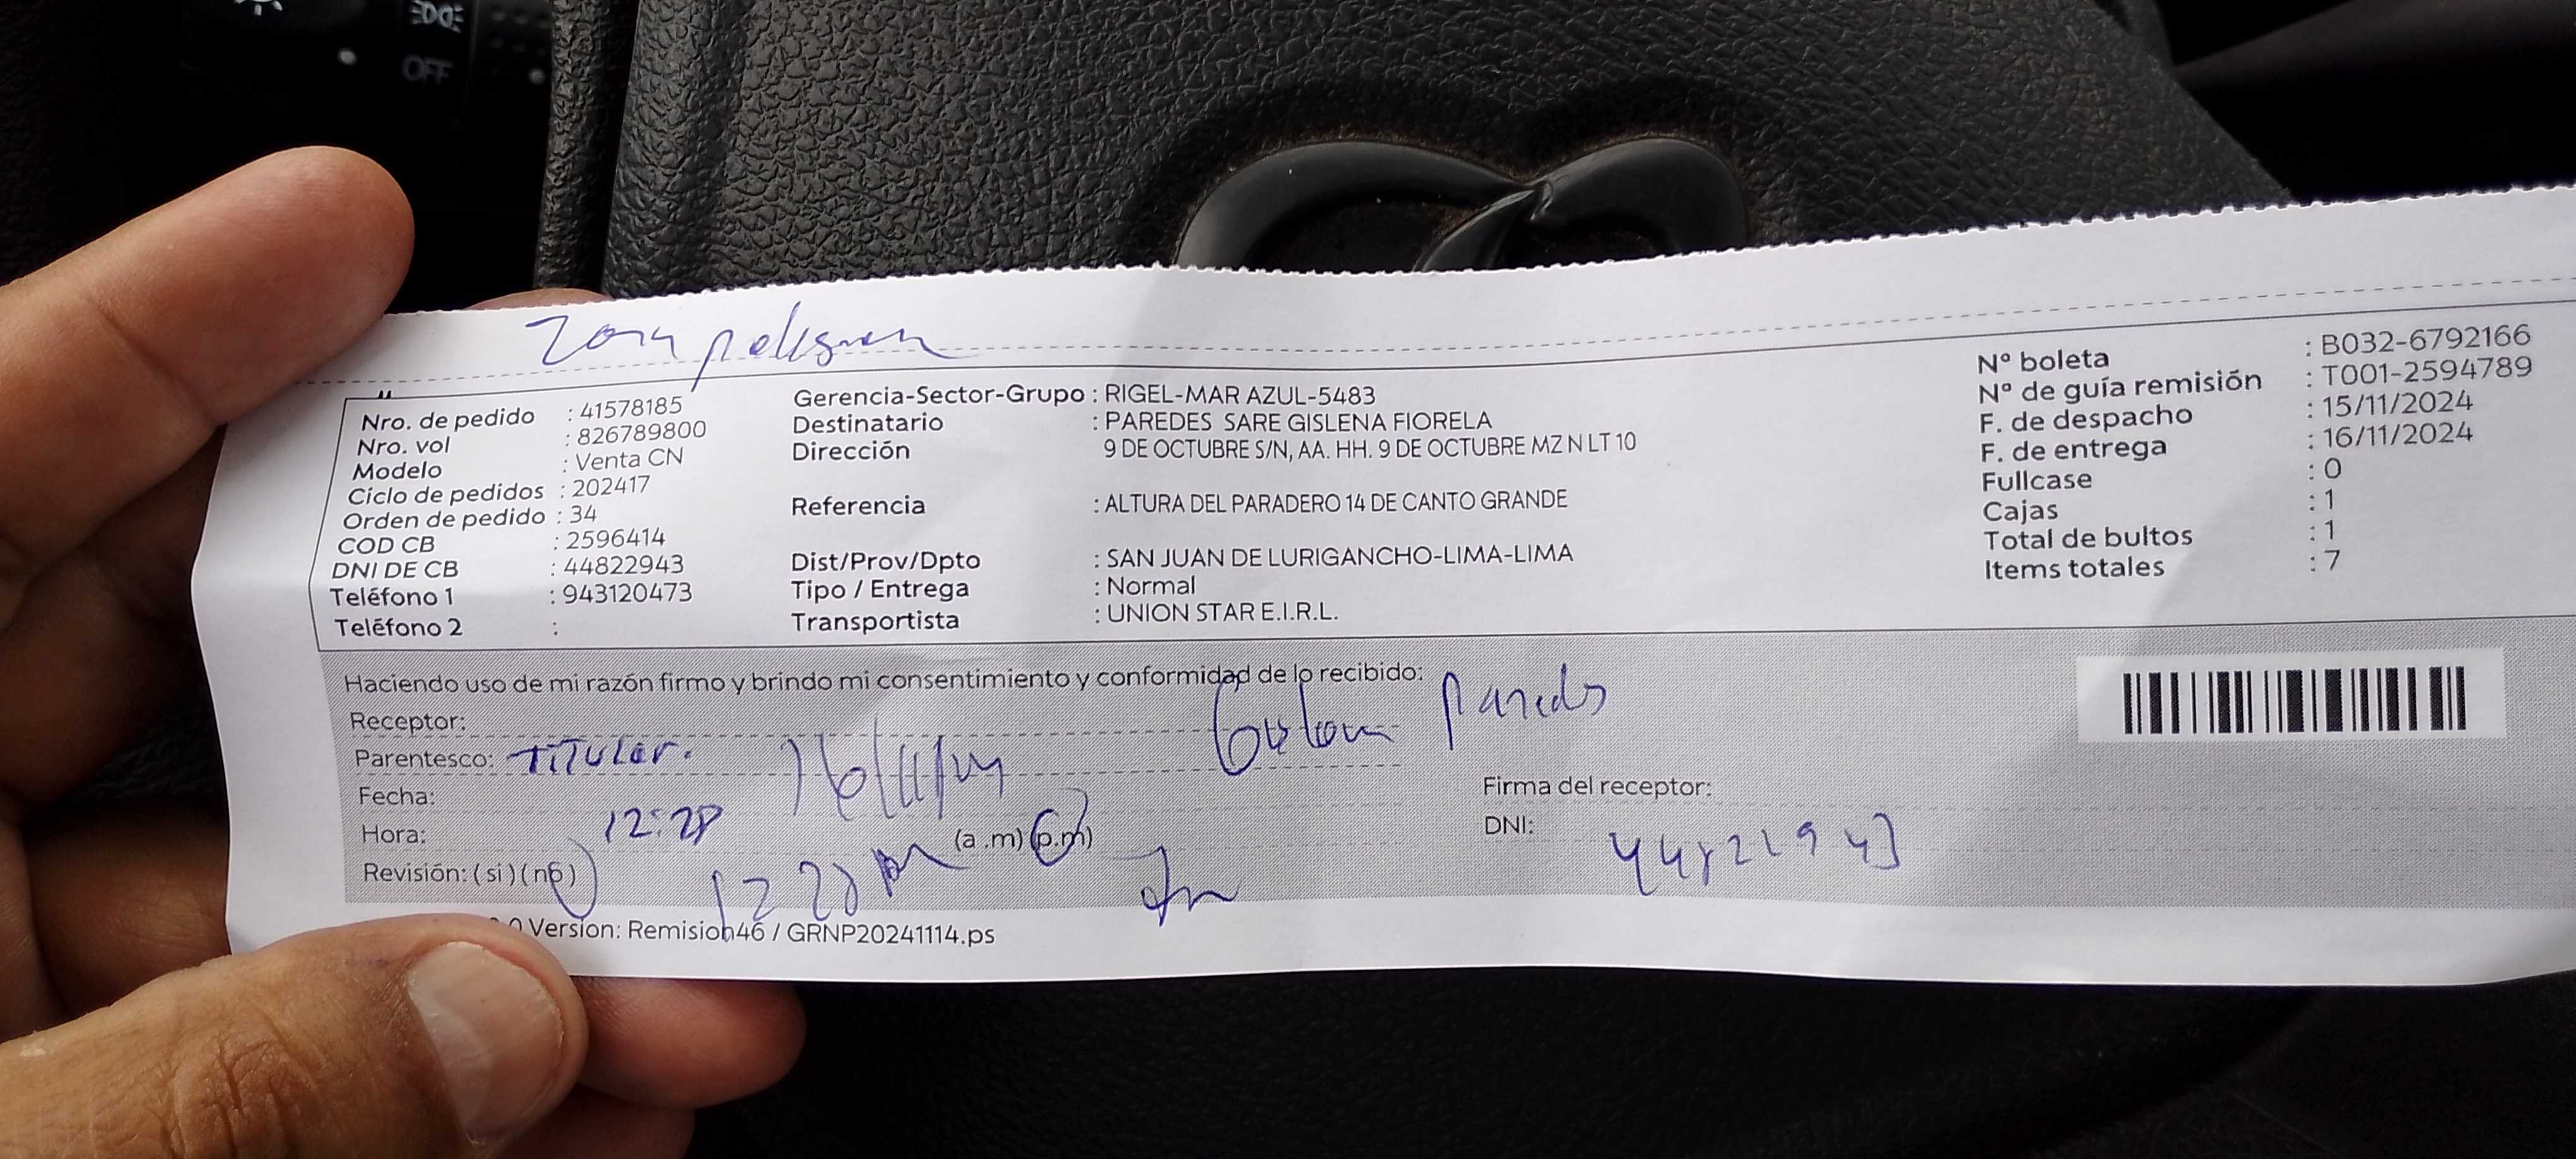 OFF
Zona peligrosa
Nro. de pedido : 41578185
Nro. vol : 826789800
Modelo : Venta CN
Ciclo de pedidos : 202417
Orden de pedido : 34
COD CB : 2596414
DNI DE CB : 44822943
Teléfono 1 : 943120473
Teléfono 2 :
Gerencia-Sector-Grupo : RIGEL-MAR AZUL-5483
Destinatario : PAREDES SARE GISLENA FIORELA
Dirección 9 DE OCTUBRE S/N, AA. HH. 9 DE OCTUBRE MZ N LT 10
Referencia : ALTURA DEL PARADERO 14 DE CANTO GRANDE
Dist/Prov/Dpto : SAN JUAN DE LURIGANCHO-LIMA-LIMA
Tipo / Entrega : Normal
Transportista : UNION STAR E.I.R.L.
Nº boleta : B032-6792166
Nº de guía remisión : T001-2594789
F. de despacho : 15/11/2024
F. de entrega : 16/11/2024
Fullcase : 0
Cajas : 1
Total de bultos : 1
Items totales : 7
Haciendo uso de mi razón firmo y brindo mi consentimiento y conformidad de lo recibido:
Receptor: Paredes
Parentesco: TITULAR.
Fecha: 16/11/24
Hora: 12:28 (a.m) (p.m)
Revisión: (si) (no)
Firma del receptor:
DNI: 44822943
Version: Remision46 / GRNP20241114.ps